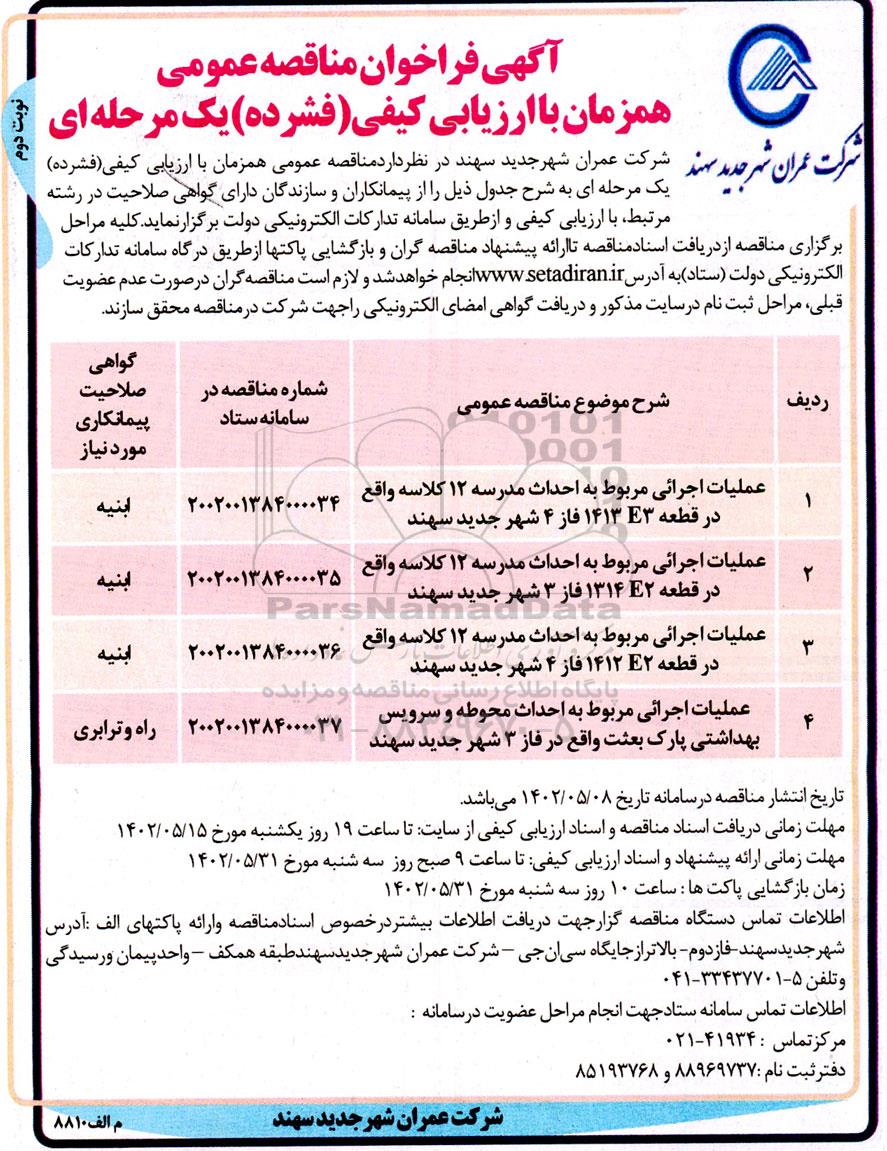 نوبت دوم
شرکت عمران شهر جدید سهند
آگهی فراخوان مناقصه عمومی
همزمان با ارزیابی کیفی(فشرده)یک مرحله ای
شرکت عمران شهرجدید سهند در نظرداردمناقصه عمومی همزمان با ارزیابی کیفی(فشرده)
یک مرحله ای به شرح جدول ذیل را از پیمانکاران و سازندگان دارای گواهی صلاحیت در رشته
مرتبط، با ارزیابی کیفی و ازطریق سامانه تدارکات الکترونیکی دولت برگزارنماید.کلیه مراحل
برگزاری مناقصه ازدریافت اسنادمناقصه تاارائه پیشنهاد مناقصه گران و بازگشایی پاکتها ازطریق درگاه سامانه تدارکات
الکترونیکی دولت (ستاد)به آدرسwww.setadiran.irانجام خواهدشد و لازم است مناقصه‌گران درصورت عدم عضویت
قبلی، مراحل ثبت نام درسایت مذکور و دریافت گواهی امضای الکترونیکی راجهت شرکت درمناقصه محقق سازند.
ردیف
شرح موضوع مناقصه عمومی
شماره مناقصه در
سامانه ستاد
گواهی
صلاحیت
پیمانکاری
مورد نیاز
۱
عملیات اجرائی مربوط به احداث مدرسه ۱۲ کلاسه واقع
در قطعه E۳ ۱۴۱۳ فاز ۴ شهر جدید سهند
۲۰۰۲۰۰۱۳۸۴۰۰۰۰۳۴
ابنیه
۲
عملیات اجرائی مربوط به احداث مدرسه ۱۲ کلاسه واقع
در قطعه E۲ ۱۳۱۴ فاز ۳ شهر جدید سهند
۲۰۰۲۰۰۱۳۸۴۰۰۰۰۳۵
ابنیه
۳
عملیات اجرائی مربوط به احداث مدرسه ۱۲ کلاسه واقع
در قطعه E۲ ۱۴۱۲ فاز ۴ شهر جدید سهند
۲۰۰۲۰۰۱۳۸۴۰۰۰۰۳۶
ابنیه
۴
عملیات اجرائی مربوط به احداث محوطه و سرویس
بهداشتی پارک بعثت واقع در فاز ۳ شهر جدید سهند
۲۰۰۲۰۰۱۳۸۴۰۰۰۰۳۷
راه و ترابری
ParsNamadData
پایگاه اطلاع رسانی مناقصه و مزایده
۰۲۱-۸۸۳۴۹۶۷۰-۵
تاریخ انتشار مناقصه درسامانه تاریخ ۱۴۰۲/۰۵/۰۸ می‌باشد.
مهلت زمانی دریافت اسناد مناقصه و اسناد ارزیابی کیفی از سایت: تا ساعت ۱۹ روز یکشنبه مورخ ۱۴۰۲/۰۵/۱۵
مهلت زمانی ارائه پیشنهاد و اسناد ارزیابی کیفی: تا ساعت ۹ صبح روز سه شنبه مورخ ۱۴۰۲/۰۵/۳۱
زمان بازگشایی پاکت ها : ساعت ۱۰ روز سه شنبه مورخ ۱۴۰۲/۰۵/۳۱
اطلاعات تماس دستگاه مناقصه گزارجهت دریافت اطلاعات بیشتردرخصوص اسنادمناقصه وارائه پاکتهای الف :آدرس
شهرجدیدسهند-فازدوم- بالاترازجایگاه سی‌ان‌جی – شرکت عمران شهرجدیدسهندطبقه همکف – واحدپیمان ورسیدگی
وتلفن ۵-۳۳۴۳۷۷۰۱-۰۴۱
اطلاعات تماس سامانه ستادجهت انجام مراحل عضویت درسامانه :
مرکزتماس : ۴۱۹۳۴-۰۲۱
دفترثبت نام :۸۸۹۶۹۷۳۷ و ۸۵۱۹۳۷۶۸
شرکت عمران شهر جدید سهند
م الف۸۸۱۰